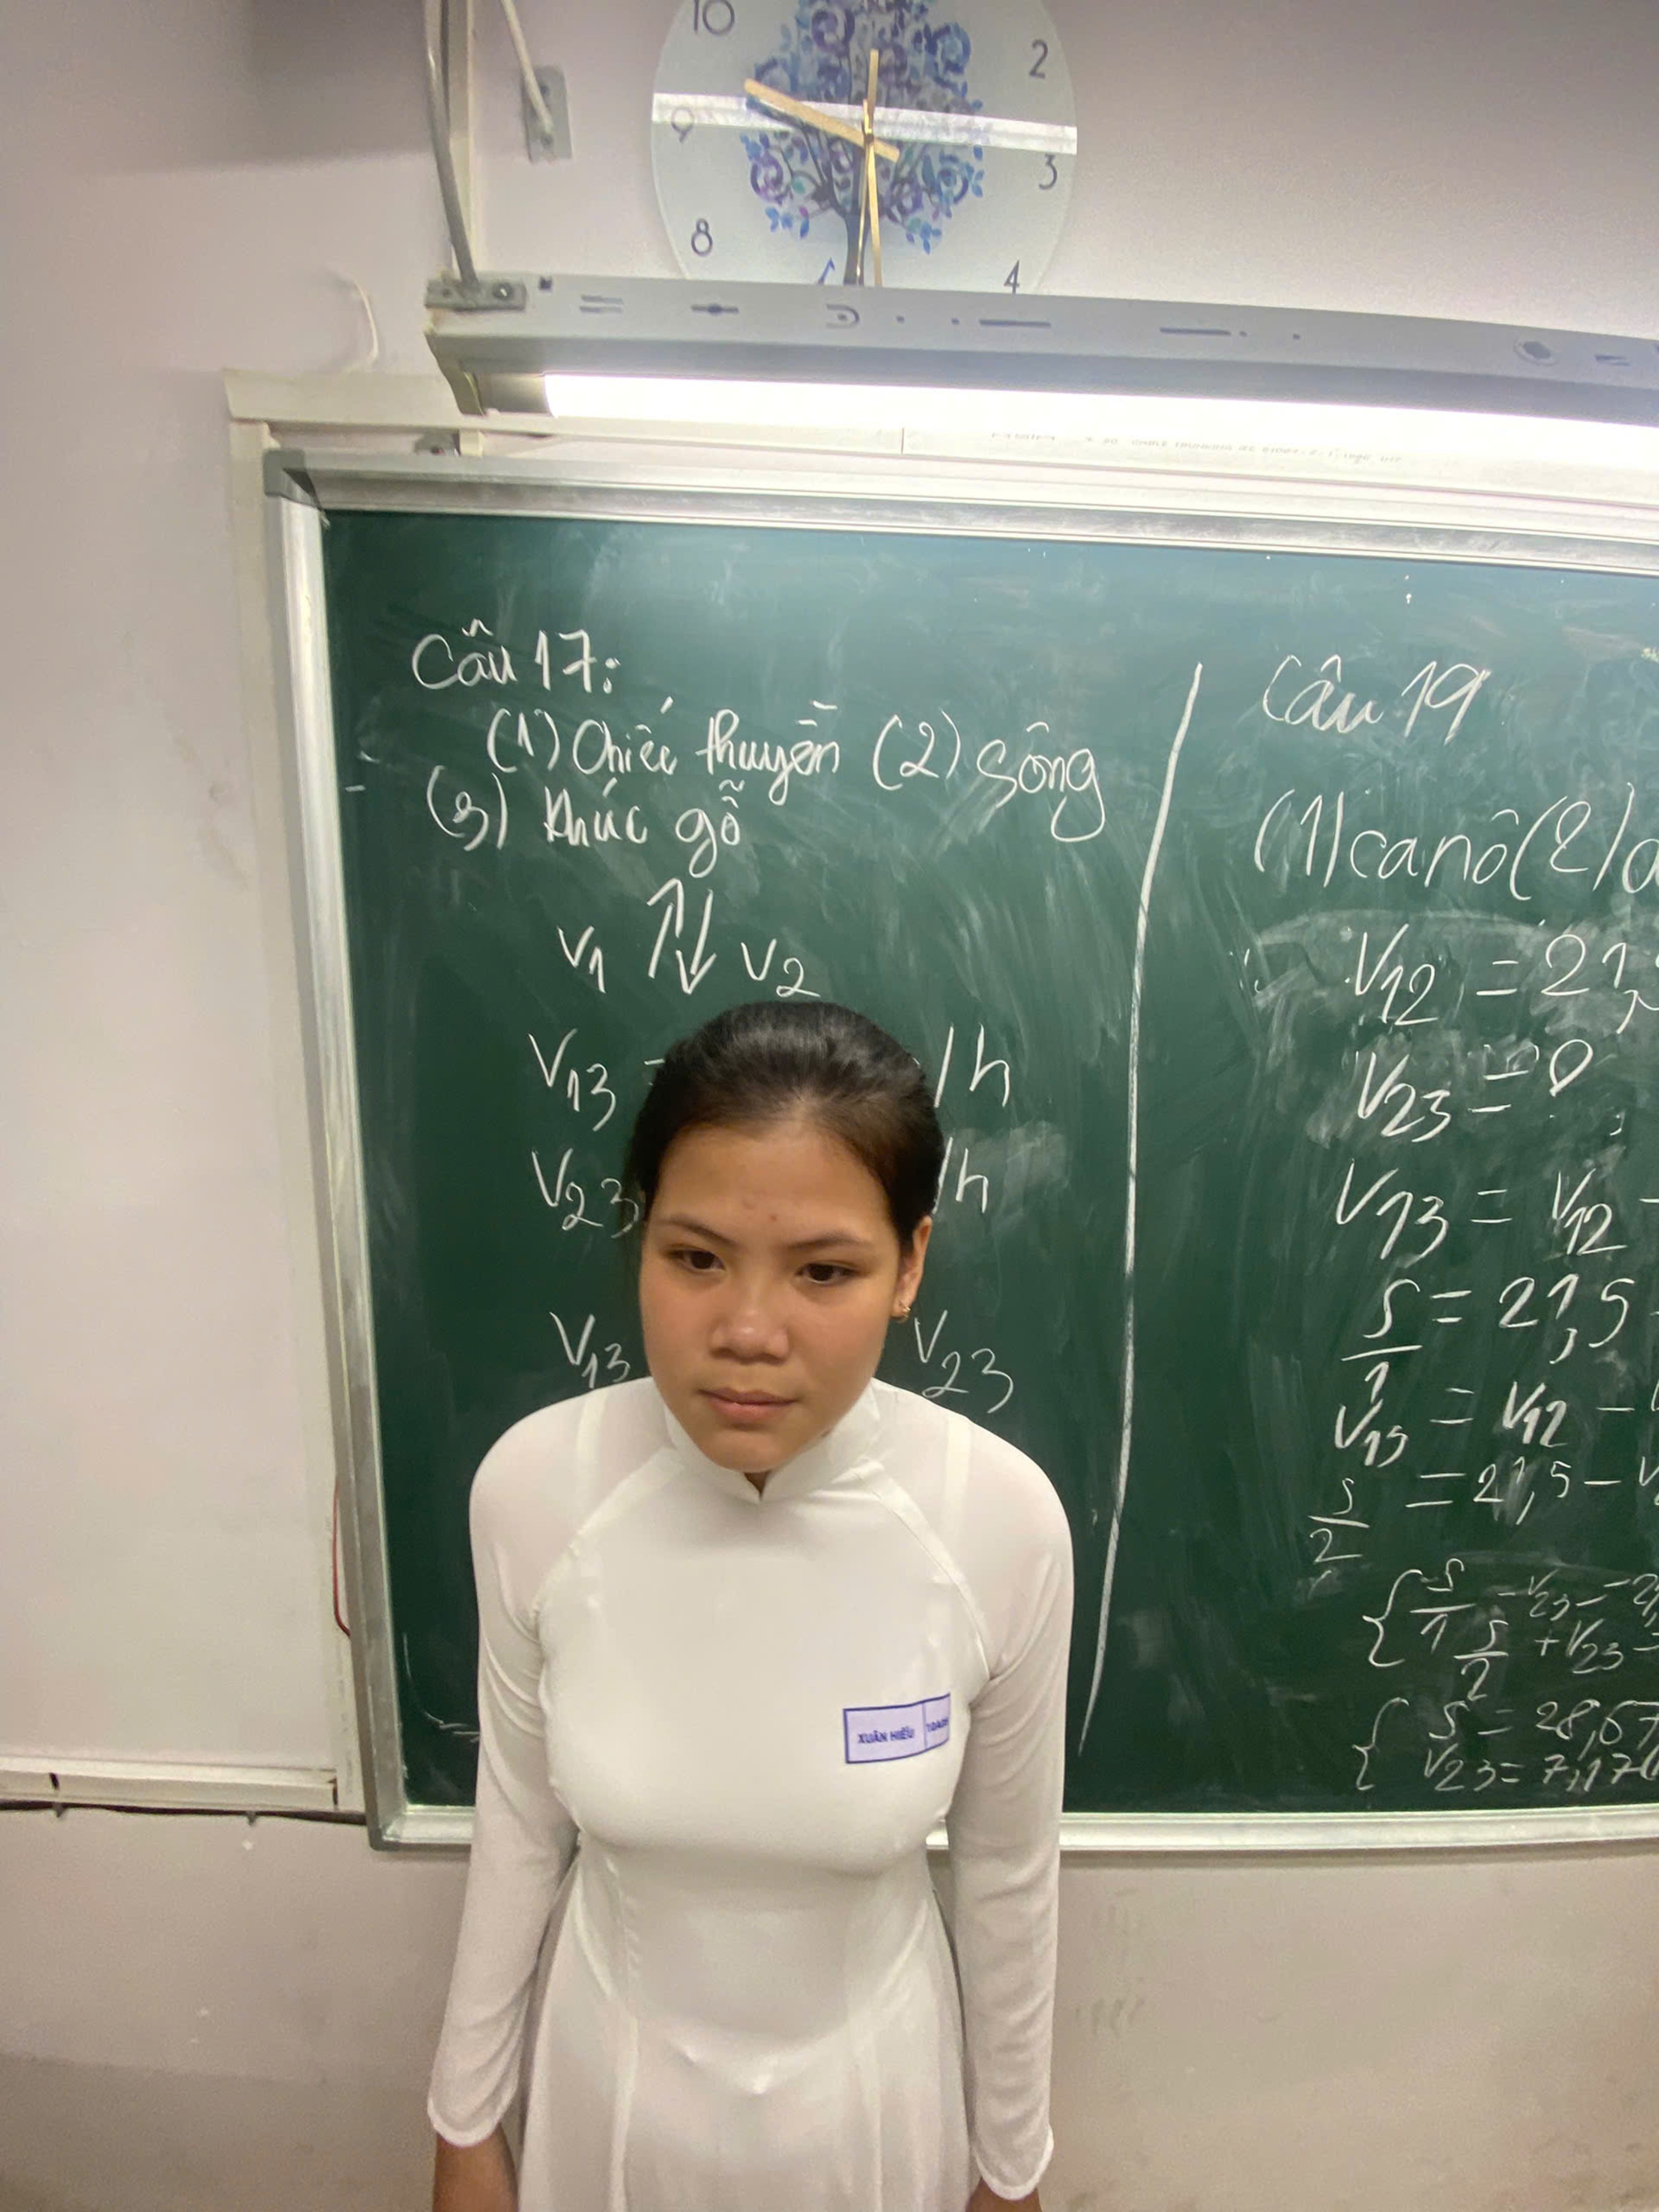 10
2
9
3
8
4
Câu 17:
(1) Chiếc thuyền (2) sông
(3) khúc gỗ
V1 ⇅ V2
V13 = /h
V23 /h
V13 V23
Câu 19
(1) canô (2)
V12 = 21,
V23 = ?
V13 = V12
S/1 = 21,5
V13 = V12 -
S/2 = 21,5 - V
{ S/1 - V23 = 2
S/2 + V23 =
{ S = 28,67
V23 = 7,17
XUÂN HIẾU